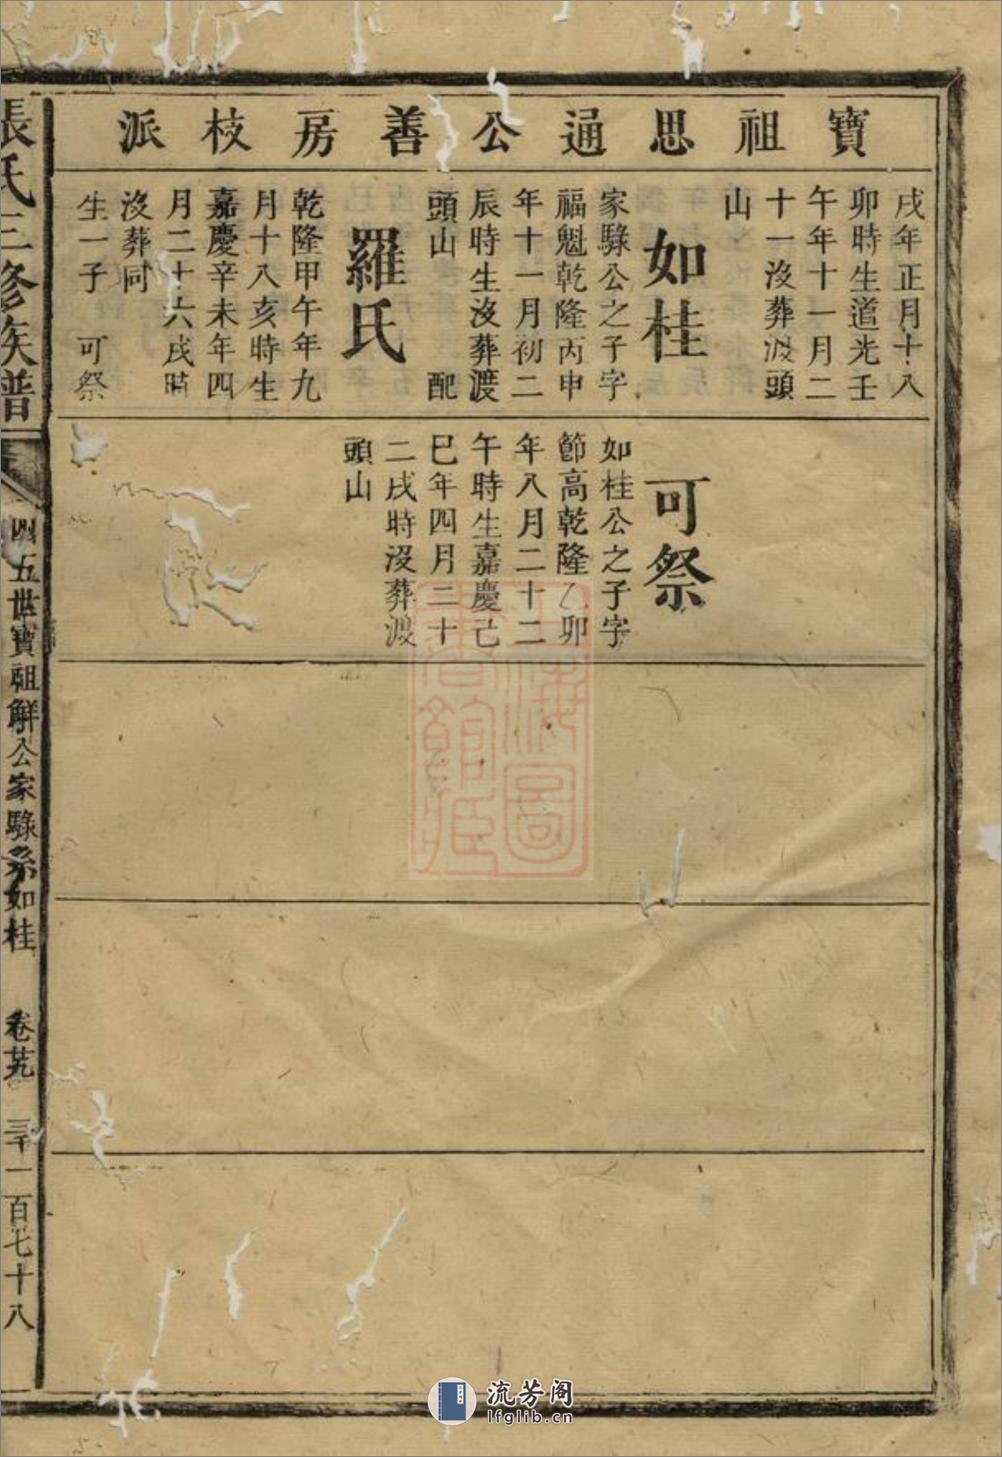 寶祖思通公善房枝派
戌年正月十八
卯時生道光壬
午年十一月二
十一沒葬渡頭
山
如桂
家騄公之子字
福魁乾隆丙申
年十一月初二
辰時生沒葬渡
頭山 配
羅氏
乾隆甲午年九
月十八亥時生
嘉慶辛未年四
月二十六戌時
沒葬同
生一子 可祭
可祭
如桂公之子字
節高乾隆乙卯
年八月二十二
午時生嘉慶己
巳年四月二十
二戌時沒葬渡
頭山
張氏三修族譜
四五世寶祖鮮公家騄系如桂
卷廿九
三千一百七十八
上海圖
書館藏
流芳阁
lfglib.cn